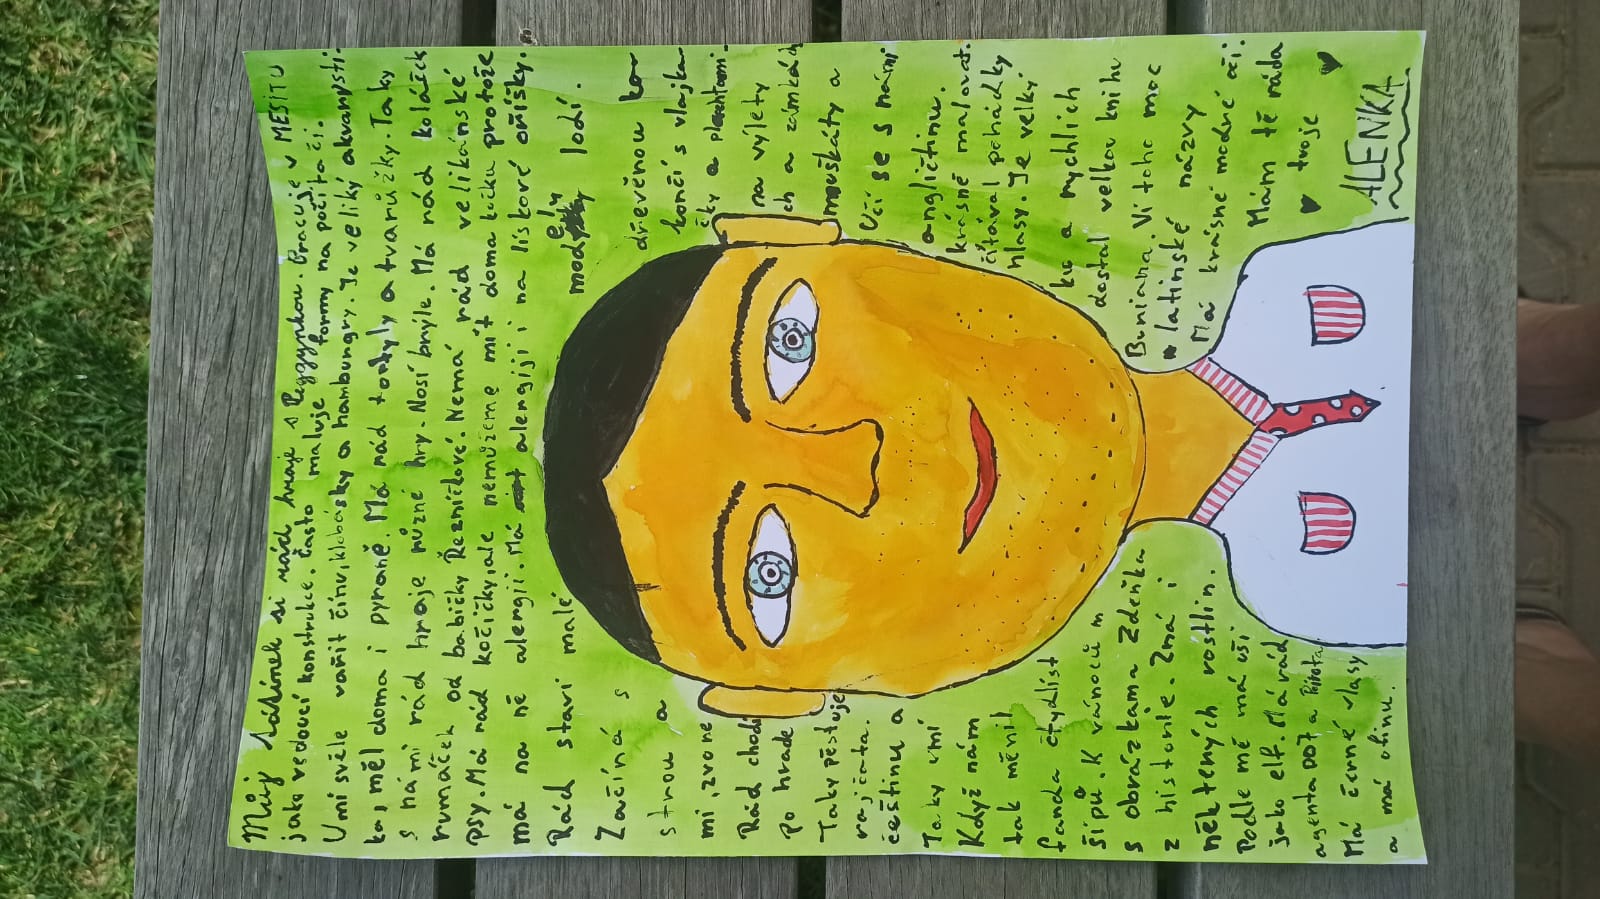 Můj tatínek si rád hraje s Peggynkou. Pracuje v MESITU
jako vedoucí konstrukce. Často maluje formy na počítači.
Umí skvěle vařit čínu, klobásky a hamburgry. Je veliký akvaristi-
ka, měl doma i pyraně. Má rád a tvarůžky. Taky
s námi rád hraje různé hry. Nosí brýle. Má rád koláček
rumáček od babičky Řezníčkové. Nemá rád velikánské
psy. Má rád kočičky, ale nemůžeme mít doma kočku protože
má na ně alergii. Má alergiji i na lískové oříšky.
Rád staví malé modely lodí.
Začíná s dřevěnou ko
strou a končí s vlajka
mi, zvone čky a plachtami.
Rád chodí na výlety
po hrade ch a zámkách
Taky pěstuje muškáty a
rajčata. Učí se s námi
češtinu a angličtinu.
Taky umí krásně malovat.
Když nám čítával pohádky
tak měnil hlasy. Je velký
fanda čtyřlíst ku a rychlich
šípů. K vánocům dostal velkou knihu
s obrázkama Zdeňka Buriana. Ví toho moc
z historie. Zná i latinské názvy
některých rostlin. Má krásné modré oči.
Podle mě má uši
jako elf. Má rád
agenta 007 a Poirota
Má černé vlasy
a má ofinu.
Mám tě ráda
♥ tvoje ♥
ALENKA